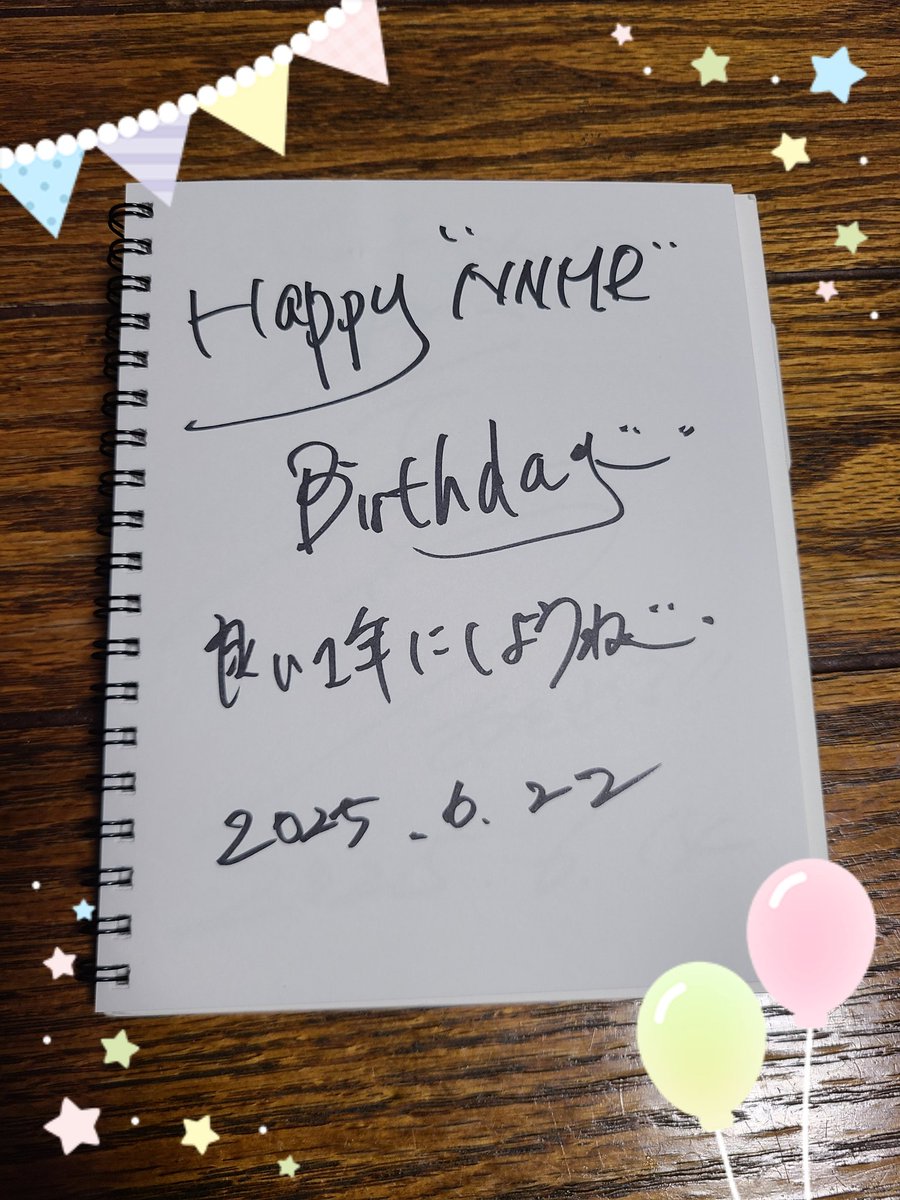 Happy "NNMR"
Birthday
良い1年にしようね
2025.6.22